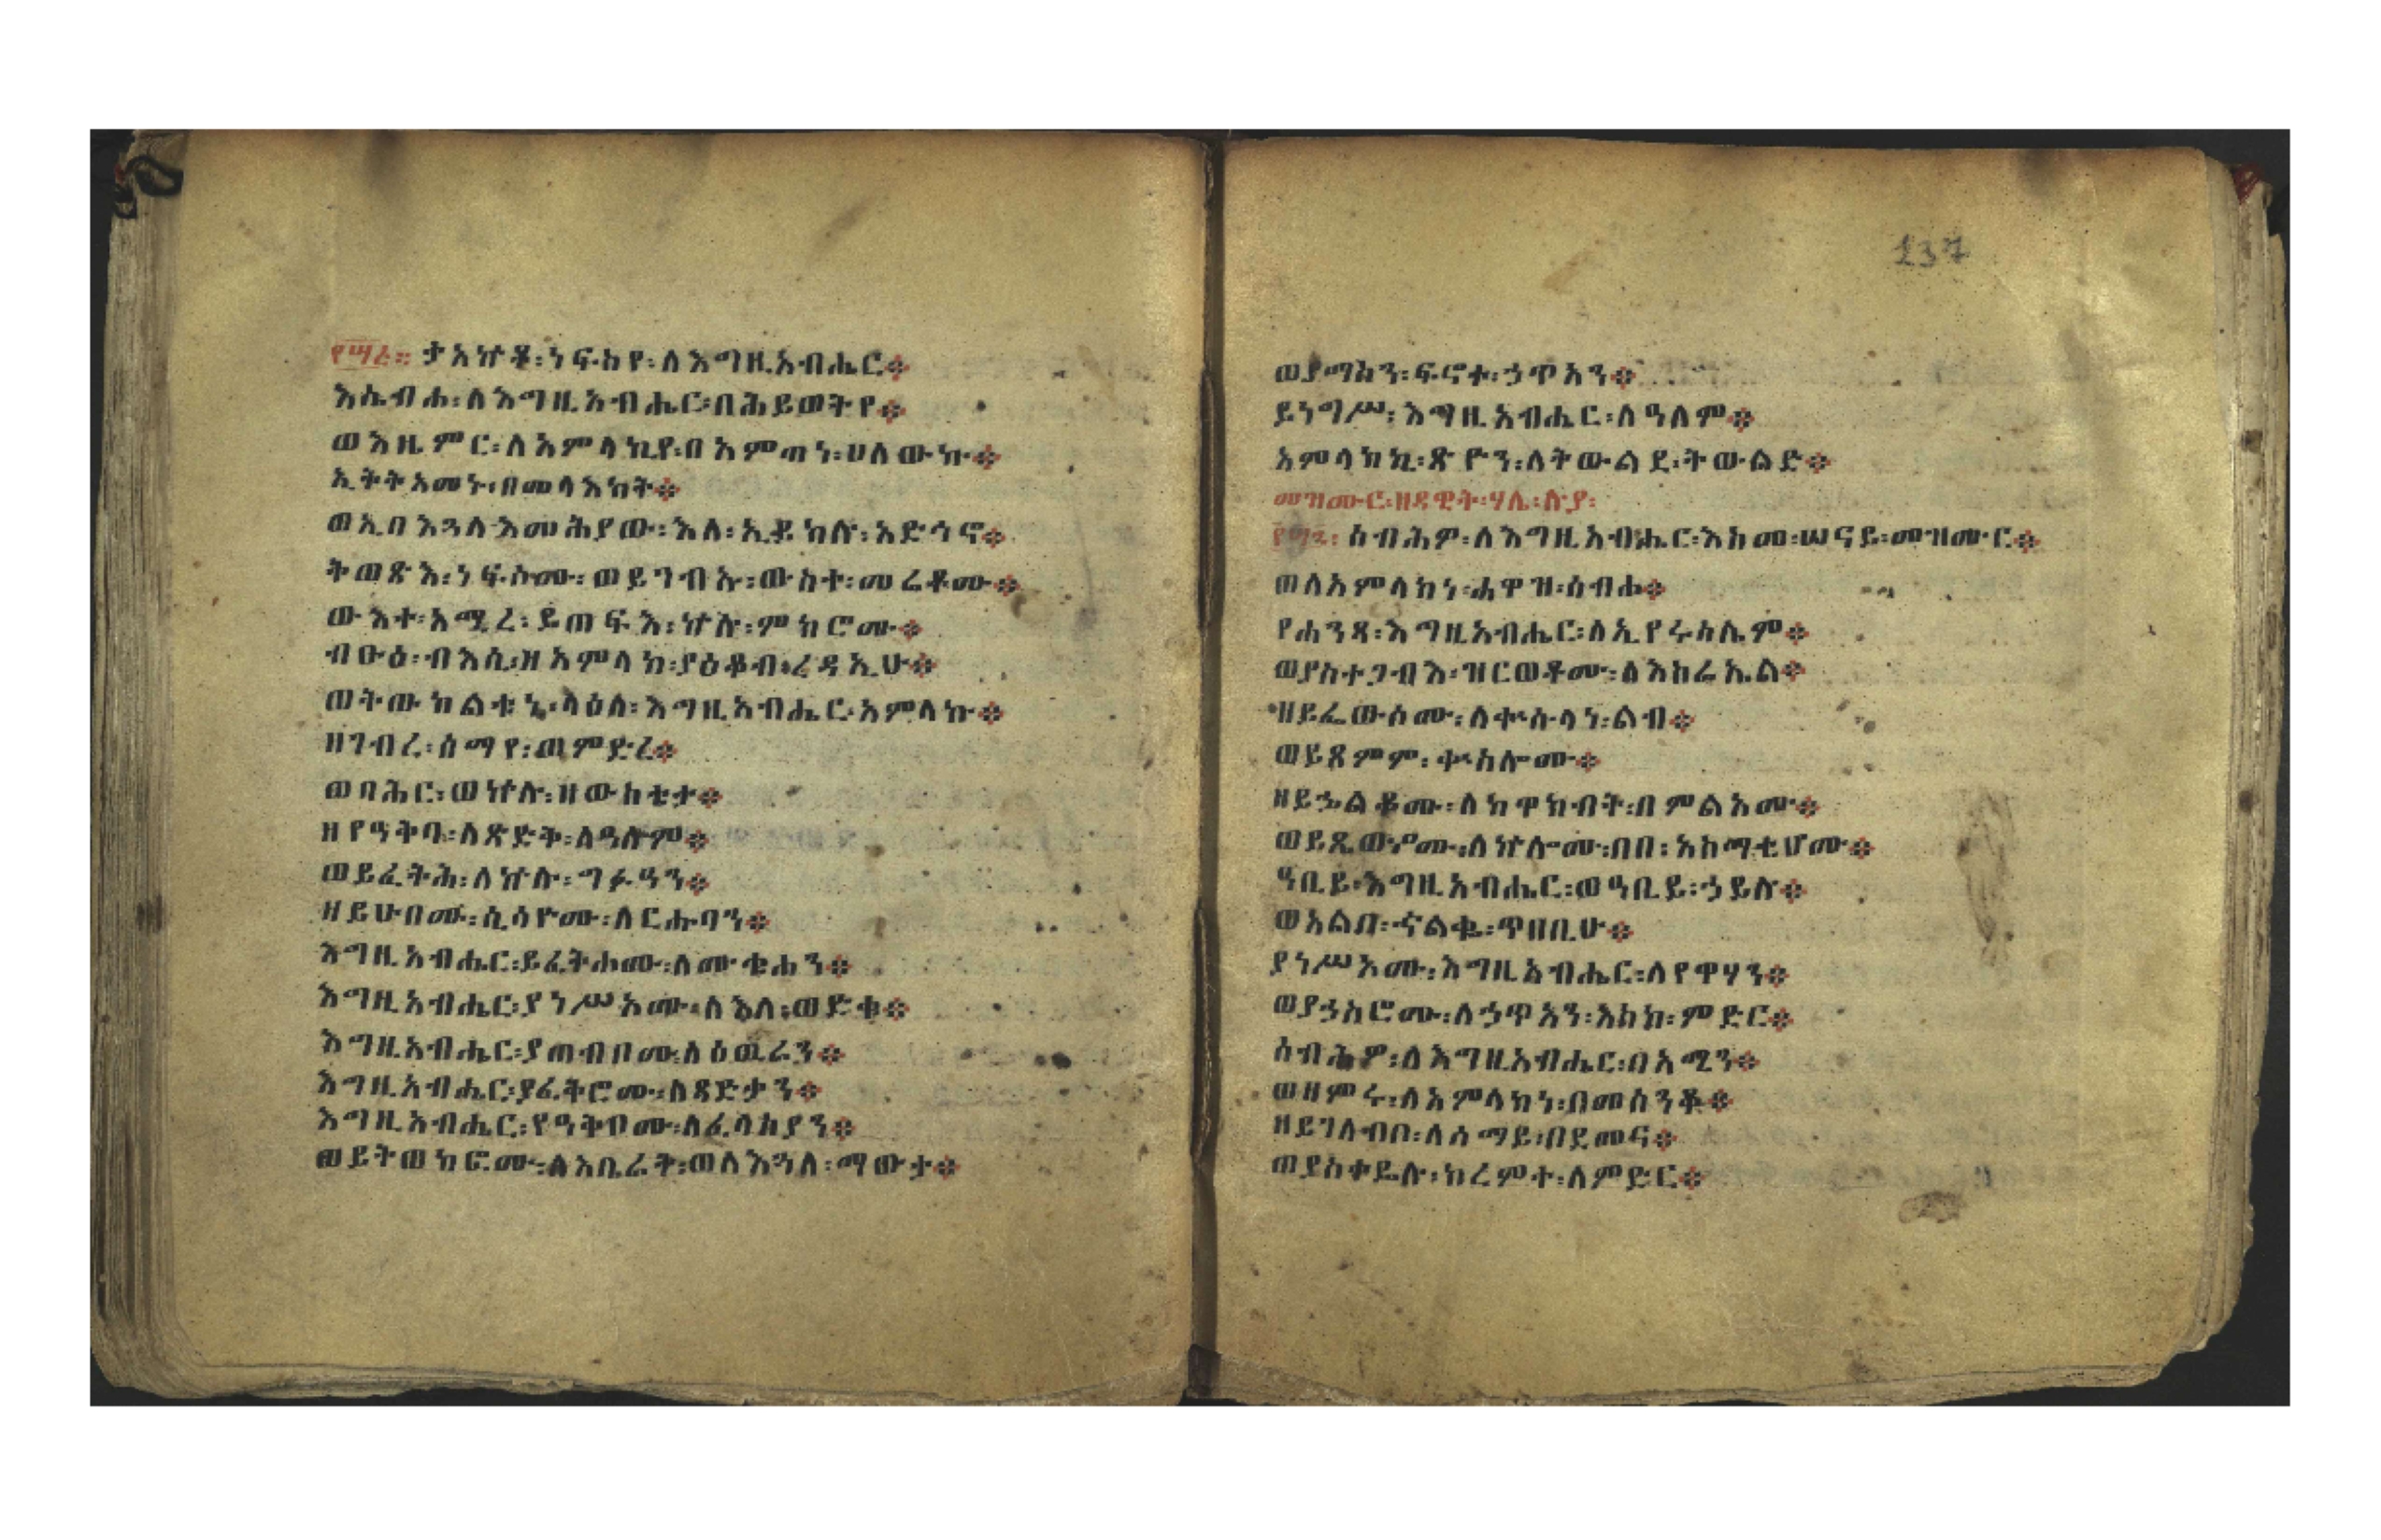 ታአኵቶ፡ነፍስየ፡ለእግዚአብሔር፨
እሴብሖ፡ለእግዚአብሔር፡በሕይወትየ፨
ወእዜምር፡ለአምላኪየ፡በአምጣነ፡ሀለውኩ፨
ኢትትአመኑ፡በመላእክት፨
ወኢበእጓለእመሕያው፡እለ፡ኢይክሉ፡አድኅኖ፨
ትወጽእ፡ነፍሶሙ፡ወይገብኡ፡ውስተ፡መሬቶሙ፨
ውእተ፡አሚረ፡ይጠፍእ፡ኵሉ፡ምክሮሙ፨
ብፁዕ፡ብእሲ፡ዘአምላከ፡ያዕቆብ፡ረዳኢሁ፨
ወትውክልቱኒ፡ላዕለ፡እግዚአብሔር፡አምላኩ፨
ዘገብረ፡ሰማየ፡ወምድረ፨
ወባሕር፡ወኵሉ፡ዘውስቴታ፨
ዘየዓቅባ፡ለጽድቅ፡ለዓለም፨
ወይፈትሕ፡ለኵሉ፡ግፉዓን፨
ዘይሁበሙ፡ሲሳዮሙ፡ለርኁባን፨
እግዚአብሔር፡ይፈትሖሙ፡ለሙቁሐን፨
እግዚአብሔር፡ያነሥአሙ፡ለእለ፡ወድቁ፨
እግዚአብሔር፡ያጠብቦሙ፡ለዕዉራን፨
እግዚአብሔር፡ያፈቅሮሙ፡ለጻድቃን፨
እግዚአብሔር፡የዓቅቦሙ፡ለፈላስያን፨
ወይትወከፎሙ፡ለእቤራት፡ወለእጓለ፡ማውታ፨
137
ወያማስን፡ፍኖተ፡ኃጥአን፨
ይነግሥ፡እግዚአብሔር፡ለዓለም፨
አምላክኪ፡ጽዮን፡ለትውልደ፡ትውልድ፨
መዝሙር፡ዘዳዊት፡ሃሌ፡ሉያ፡
ሰብሕዎ፡ለእግዚአብሔር፡እስመ፡ሠናይ፡መዝሙር፨
ወለአምላክነ፡ሐዋዝ፡ሰብሖ፨
የሐንጻ፡እግዚአብሔር፡ለኢየሩሳሌም፨
ወያስተጋብእ፡ዝርወቶሙ፡ለእስሬኤል፨
ዘይፌውሶሙ፡ለቍሱላነ፡ልብ፨
ወይጸምም፡ቍስሎሙ፨
ዘይኄልቆሙ፡ለከዋክብት፡በምልአሙ፨
ወይጼውዖሙ፡ለኵሎሙ፡በበ፡አስማቲሆሙ፨
ዓቢይ፡እግዚአብሔር፡ወዓቢይ፡ኃይሉ፨
ወአልቦ፡ኆልቈ፡ጥበቢሁ፨
ያነሥአሙ፡እግዚአብሔር፡ለየዋሃን፨
ወያኃስሮሙ፡ለኃጥአን፡እስከ፡ምድር፨
ሰብሕዎ፡ለእግዚአብሔር፡በአሚን፨
ወዘምሩ፡ለአምላክነ፡በመሰንቆ፨
ዘይገለብቦ፡ለሰማይ፡በደመና፨
ወያስተዴሉ፡ክረምተ፡ለምድር፨